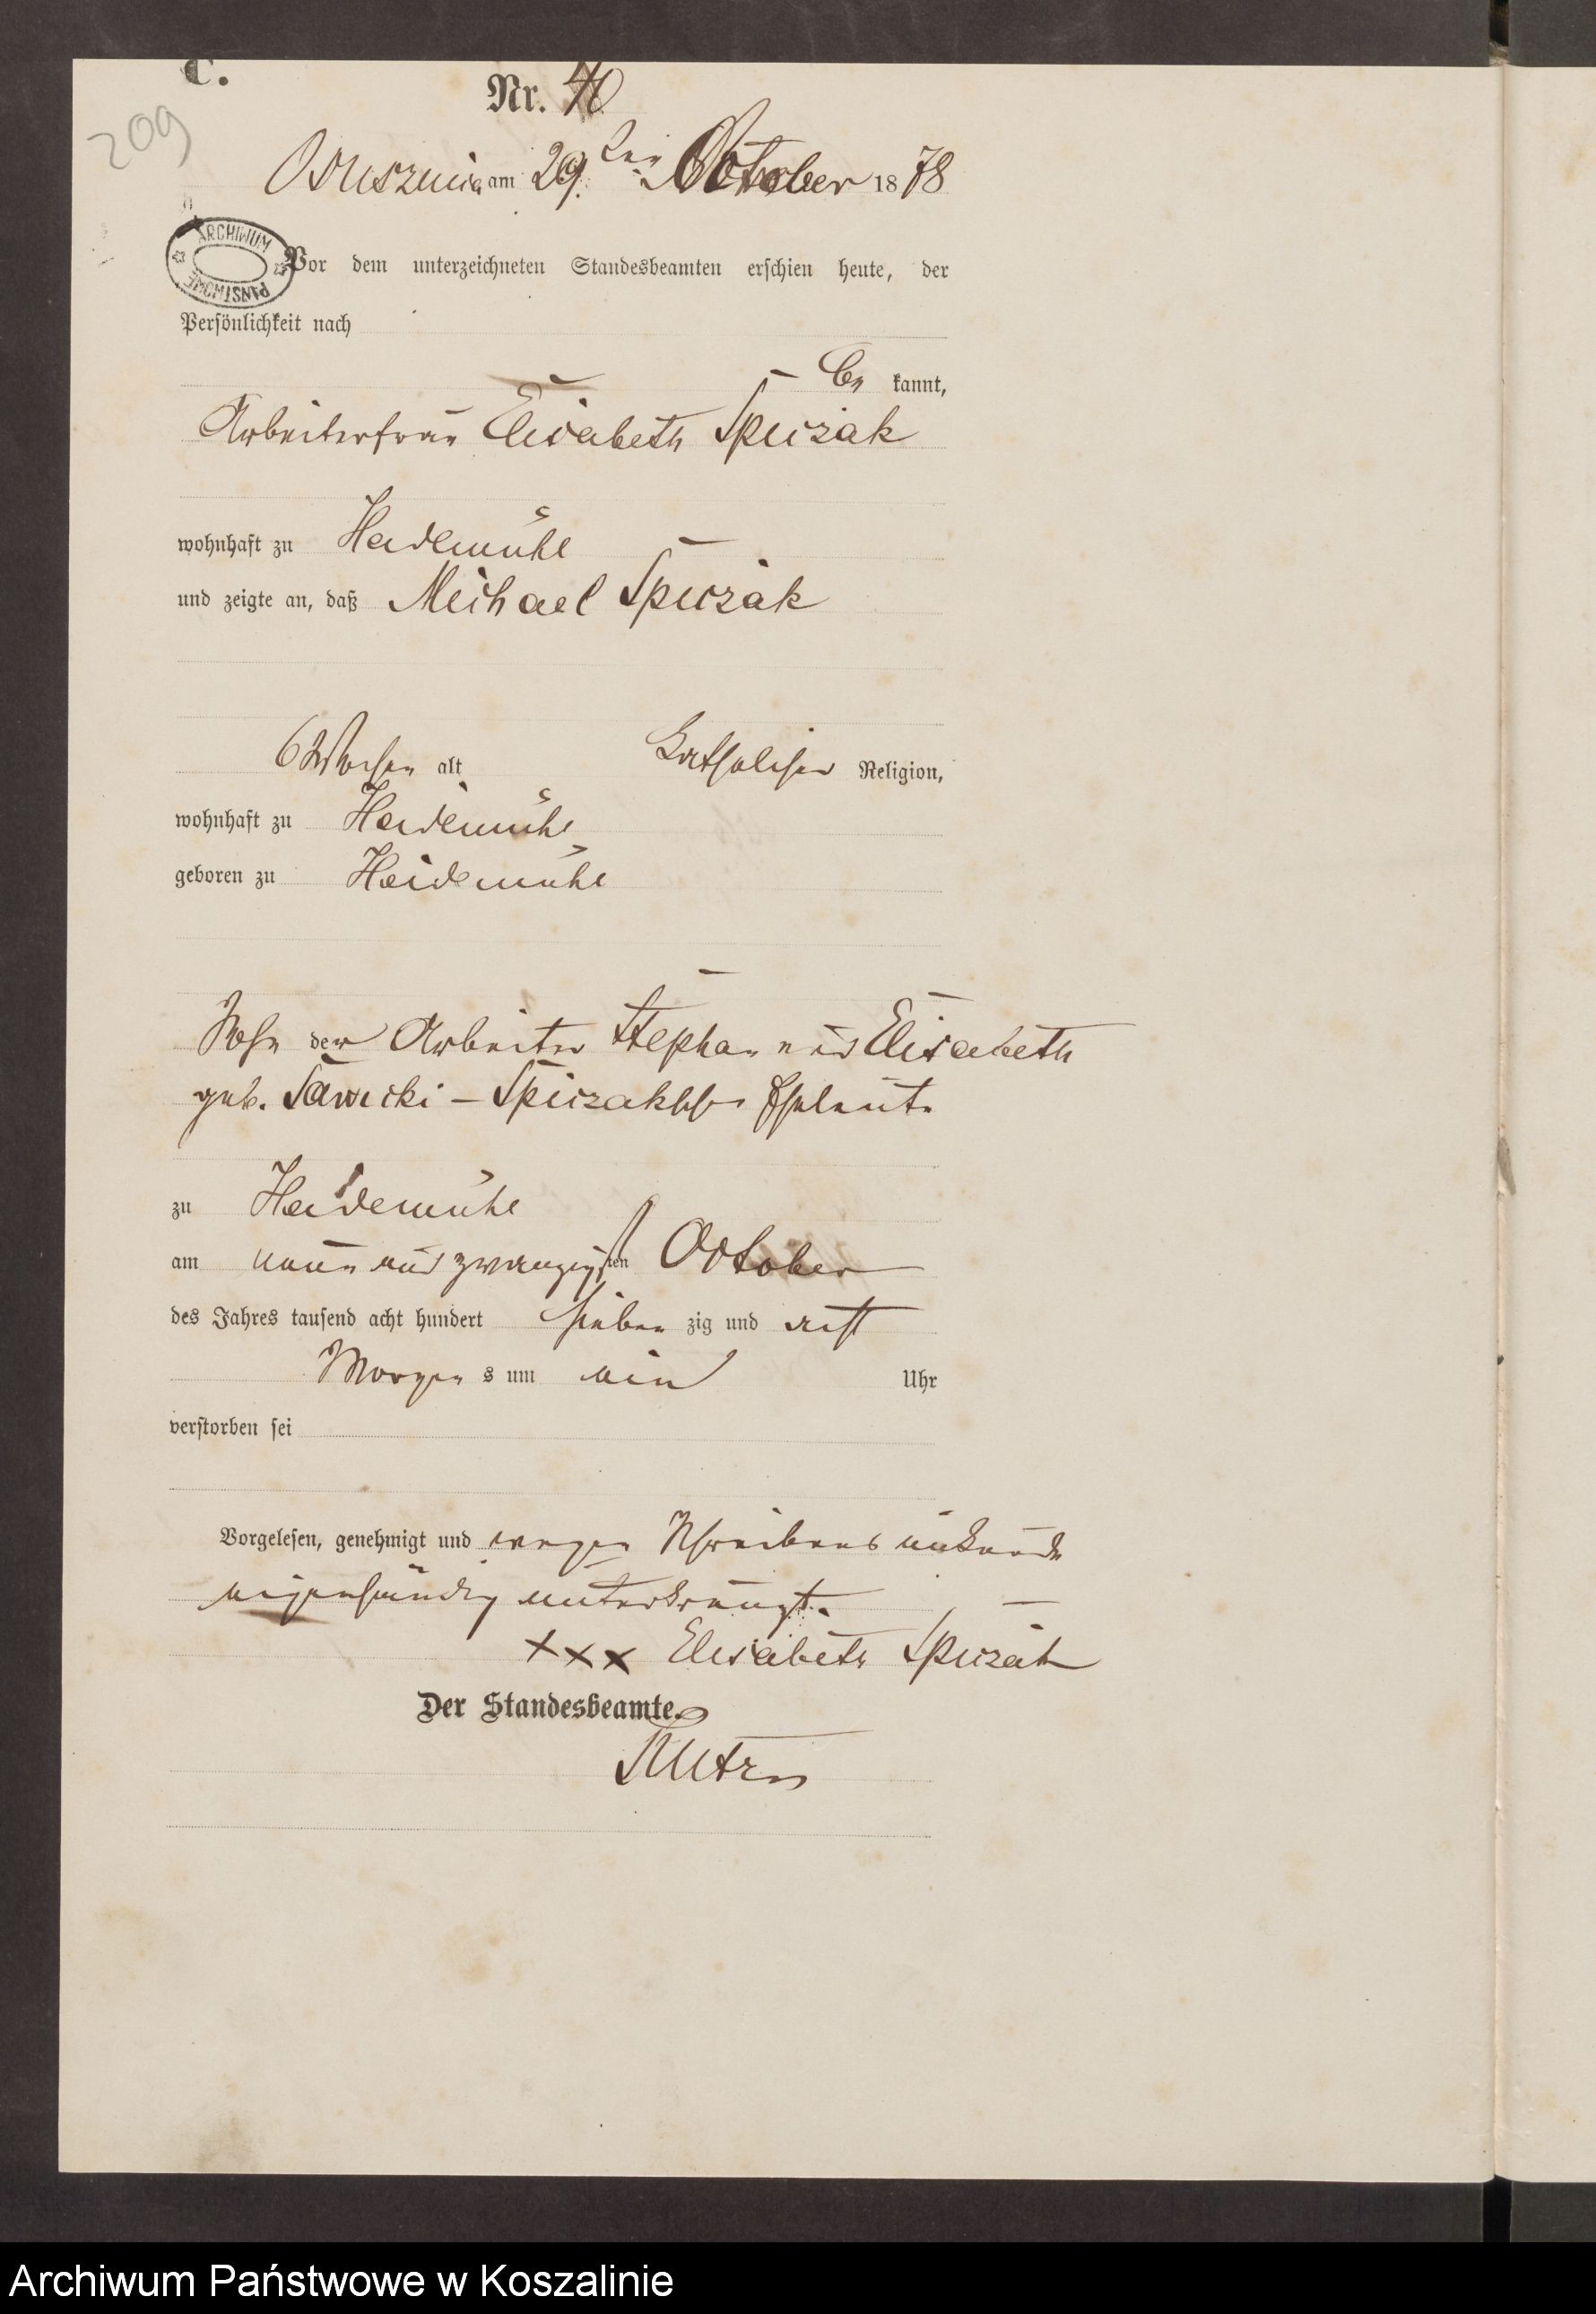 C.
Nr. 40
209
Ossuszniça am 29ten October 1878
ARCHIWUM PAŃSTWOWE
Vor dem unterzeichneten Standesbeamten erschien heute, der
Persönlichkeit nach
be kannt,
Arbeiterfrau Elisabeth Spiczak
wohnhaft zu Heidemühl
und zeigte an, daß Michael Spiczak
6 Wochen alt Katholischer Religion,
wohnhaft zu Heidemühl
geboren zu Heidemühl
Sohn der Arbeiter Stephan und Elisabeth
geb. Sawicki – Spiczakschen Eheleute
zu Heidemühl
am neun und zwanzigsten October
des Jahres tausend acht hundert sieben zig und acht
Morgen s um ein Uhr
verstorben sei
Vorgelesen, genehmigt und wegen Schreibens unkunde
eigenhändig unterkreuzt.
xxx Elisabeth Spiczak
Der Standesbeamte.
Archiwum Państwowe w Koszalinie